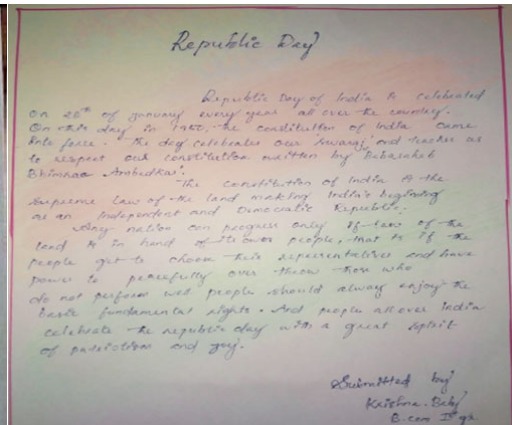 Republic Day
Republic Day of India is celebrated
on 26th of January every year all over the country.
On this day in 1950, the constitution of India came
into force. The day celebrates our swaraj and teaches us
to respect our constitution written by Babasaheb
Bhimrao Ambedkar.
The constitution of India is the
supreme law of the land making India's beginning
as an Independent and Democratic Republic.
Any nation can progress only if law of the
land is in hand of its own people, that is if the
people get to choose their representatives and have
power to peacefully over throw those who
do not perform well people should always enjoy the
basic fundamental rights. And people all over India
celebrate the republic day with a great spirit
of patriotism and joy.
Submitted by
Krishna
B.com Ist yr